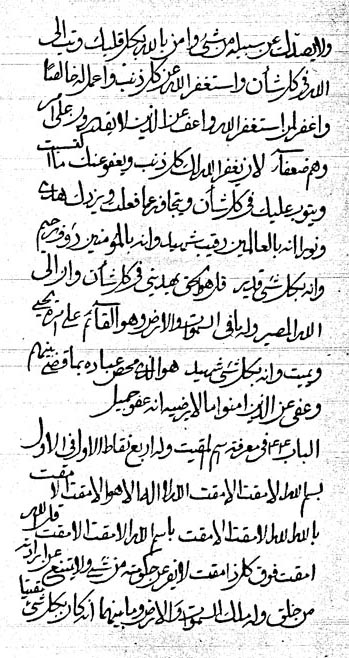 ولا يصدنك عن سبيله من شيء وامن بالله بكل قلبك وتب الى
الله في كل شأن واستغفر الله عن كل ذنب واعمله خالصا
واغفر لمن استغفر الله واعف عن الذين لا يقدرون على امر
وهم ضعفآء لان يغفر الله لك كل ذنب ويعفو عنك ما اكتسبت
ويتوب عليك في كل شأن ويتجاوز عما فعلت ويزدك هدى
ونورا انه بالعالمين رقيب شهيد وانه بالمؤمنين رؤوف رحيم
وانه بكل شيء قدير قل هو الحق يهديني في كل شأن وان الى
الله المصير وله ما في السموات والارض وهو القآئم على امره يحيي
ويميت وانه بكل شيء شهيد هو الذي محص عباده بما قضى بينهم
وعفى عن الذين امنوا ما لا يرضيه انه عفو جميل
الباب في معرفة اسم المقيت وله اربع نقاط الاول في الاول
بسم الله الامقت الامقت الله لا اله الا هو الامقت الامقت
بالله الله الامقت الامقت باسم الله الامقت الامقت قل الله
امقت فوق كل ذا امقت لن يقدر ان يمتنع عن
من خلق وله ملك السموات والارض وما بينهما انه كان بكل شيء مقيتا